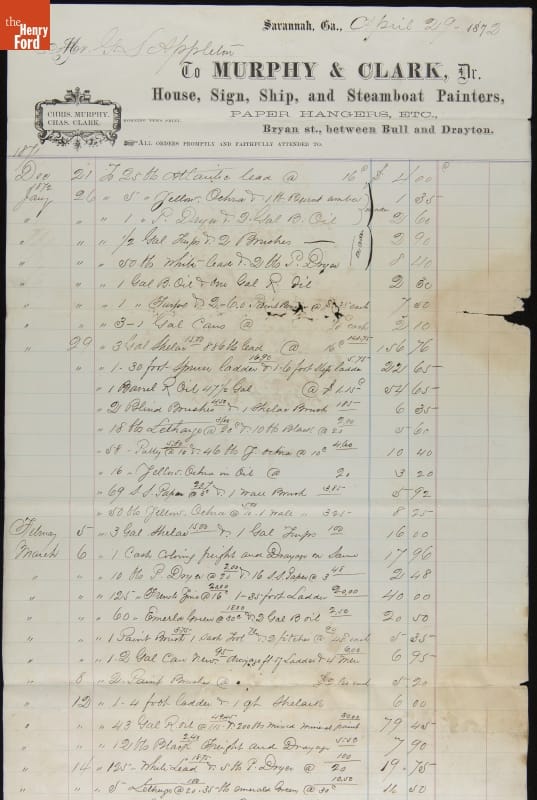 from
the Henry Ford
Savannah, Ga., April 29 1872
Mr Geo S Appleton
To MURPHY & CLARK, Dr.
House, Sign, Ship, and Steamboat Painters,
PAPER HANGERS, ETC.,
CHRIS. MURPHY.
CHAS. CLARK.
Bryan st., between Bull and Drayton.
ALL ORDERS PROMPTLY AND FAITHFULLY ATTENDED TO.
1871
Dec 21 To 25 lb Atlantic lead @ 16c $4 00
1872
Jany 26 " 5 " Yellow Ochra & 1 lb Burnt umber 1 35
" " 1 " P. Dryer & 2 Gal B. Oil 2 60
" " 1/2 Gal Turps & 2 Brushes 2 90
" " 50 lb White lead & 2 lb P. Dryer 8 40
" " 1 Gal B. Oil & one Gal R Oil 2 30
" " 1 " Turps & 2-6.0 Paint Brushes @ each 7 50
" " 3-1 Gal Cans @ each 2 10
" 29 " 3 Gal Shelac 15.00 & 886 lb lead @ 16c 141.76 156 76
" " 1-30 foot Spruce ladder 16.90 & 1-6 foot Step ladder 5.75 22 65
" 1 Barrel R. Oil 47 1/2 Gal @ $1.15c 54 65
" 2 Blind Brushes 4.50 & 1 Shelac Brush 1.85 6 35
" 18 lb Letharge @ 20c 3.60 & 10 lb Black @ 20 2.00 5 60
" 58 " Putty @ 10c 5.80 & 46 lb Y. ochra @ 10c 4.60 10 40
" 16 " Yellow Ochra in Oil @ 20 3 20
" 69 S.S. Paper @ 3c 2.07 & 1 Wall Brush 3.85 5 92
" 50 lb Yellow Ochra @ & 1 Wall " 3.25 8 25
Febuary 5 " 3 Gal Shelac 15.00 & 1 Gal Turps 1.00 16 00
March 6 " 1 Cask Coloring freight and Drayage on Same 17 96
" " 10 lb P. Dryer @ 20 2.00 & 16 S.S. Paper @ 3 48 2 48
" " 125 " French Zinc @ 16c 20.00 1-35 foot Ladder 20.00 40 00
" " 60 " Emerald Green @ 30c 18.00 & 2 Gal B oil 2.50 20 50
" " 1 Paint Brush 3.75 1 Sash Tool & 2 @ each 5 35
" " 1-2 Gal Can New 95 drayage of Ladder & 4 Men 6.00 6 95
" 8 " 2 Paint Brushes @ each 5 20
" 12 " 1-4 foot ladder & 1 qt Shelack 6 00
" " 43 Gal R. oil @ 49.45 & 200 lb mixed mineral paint 30.00 79 45
" " 12 lb Black 2.40 freight and Drayage 5.50 7 90
" 14 " 125 " White Lead 18.75 & 5 lb P. Dryer @ 20 1.00 19 75
" " 5 " Letharge @ 20 1.00 - 35 lb emerald Green @ 30c 10.50 11 50